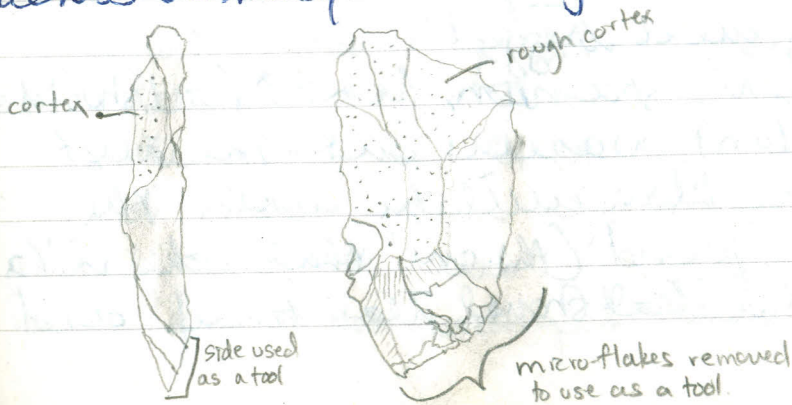 rough cortex
cortex
side used
as a tool
micro-flakes removed
to use as a tool.